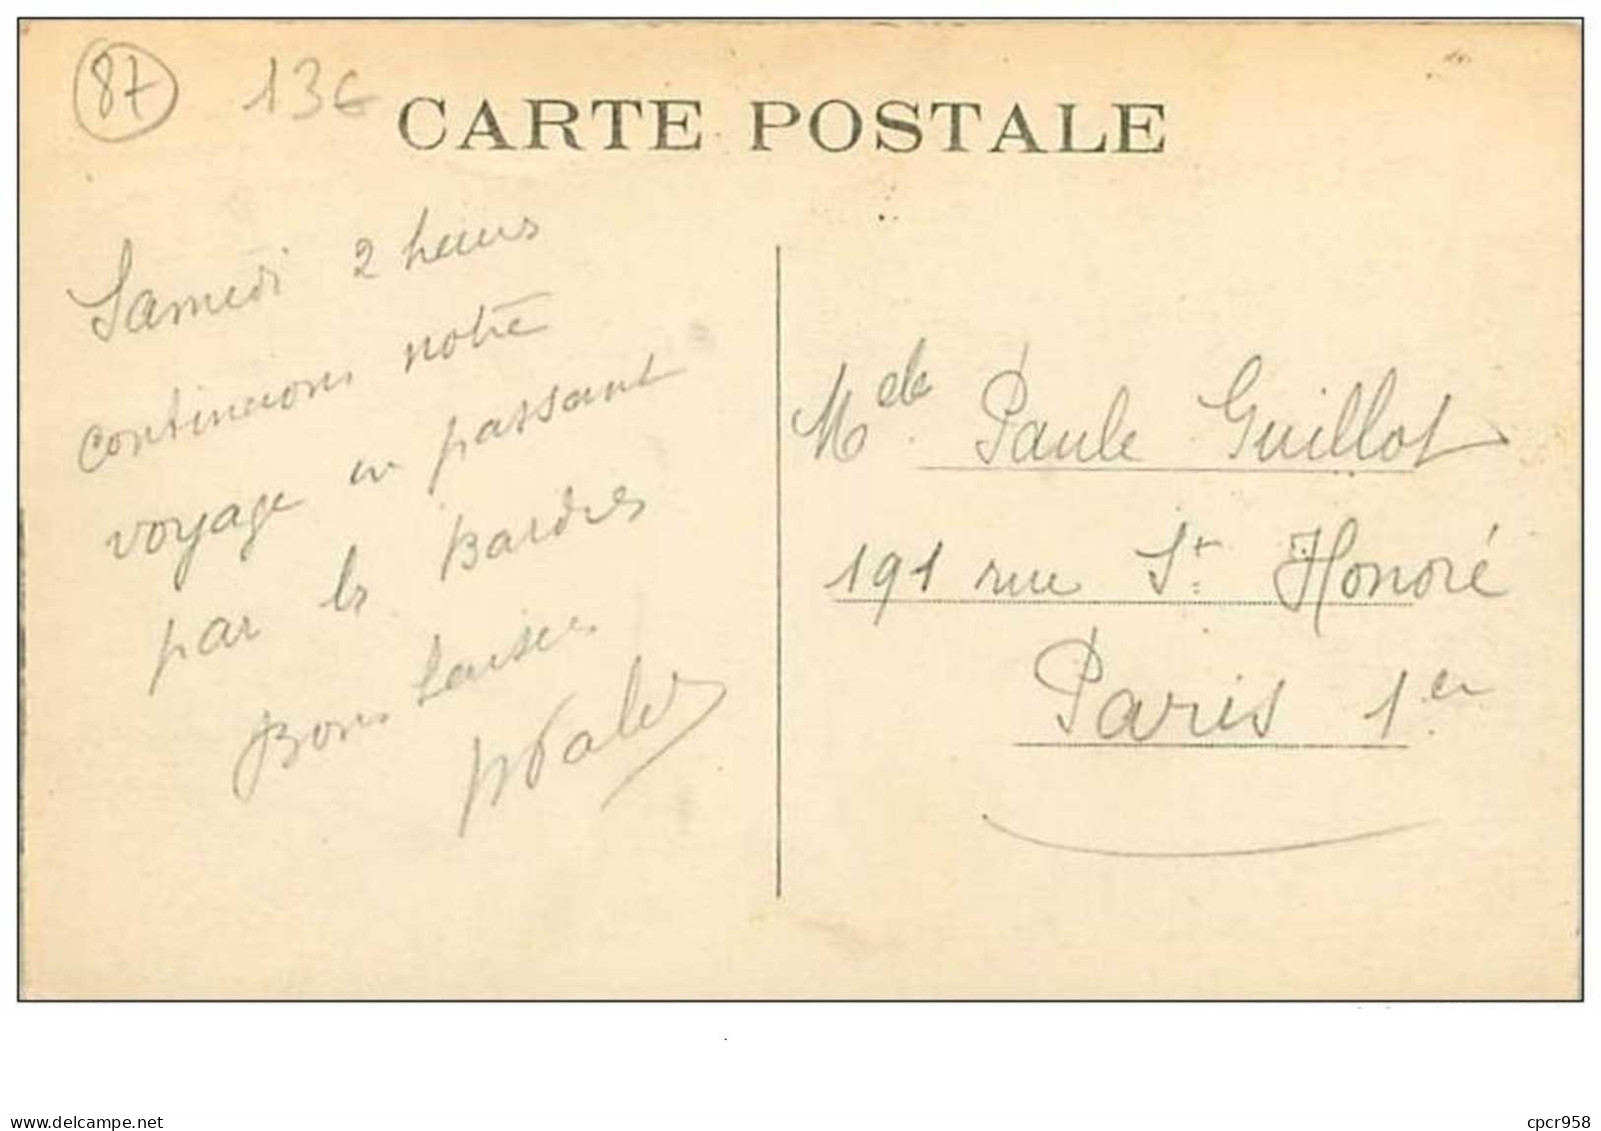 87 13€
CARTE POSTALE
Samedi 2 heures
continuons notre
voyage en passant
par les
Bons baisers
Mde Paule Guillot
191 rue St Honoré
Paris 1er
delcampe.net
cpcr958